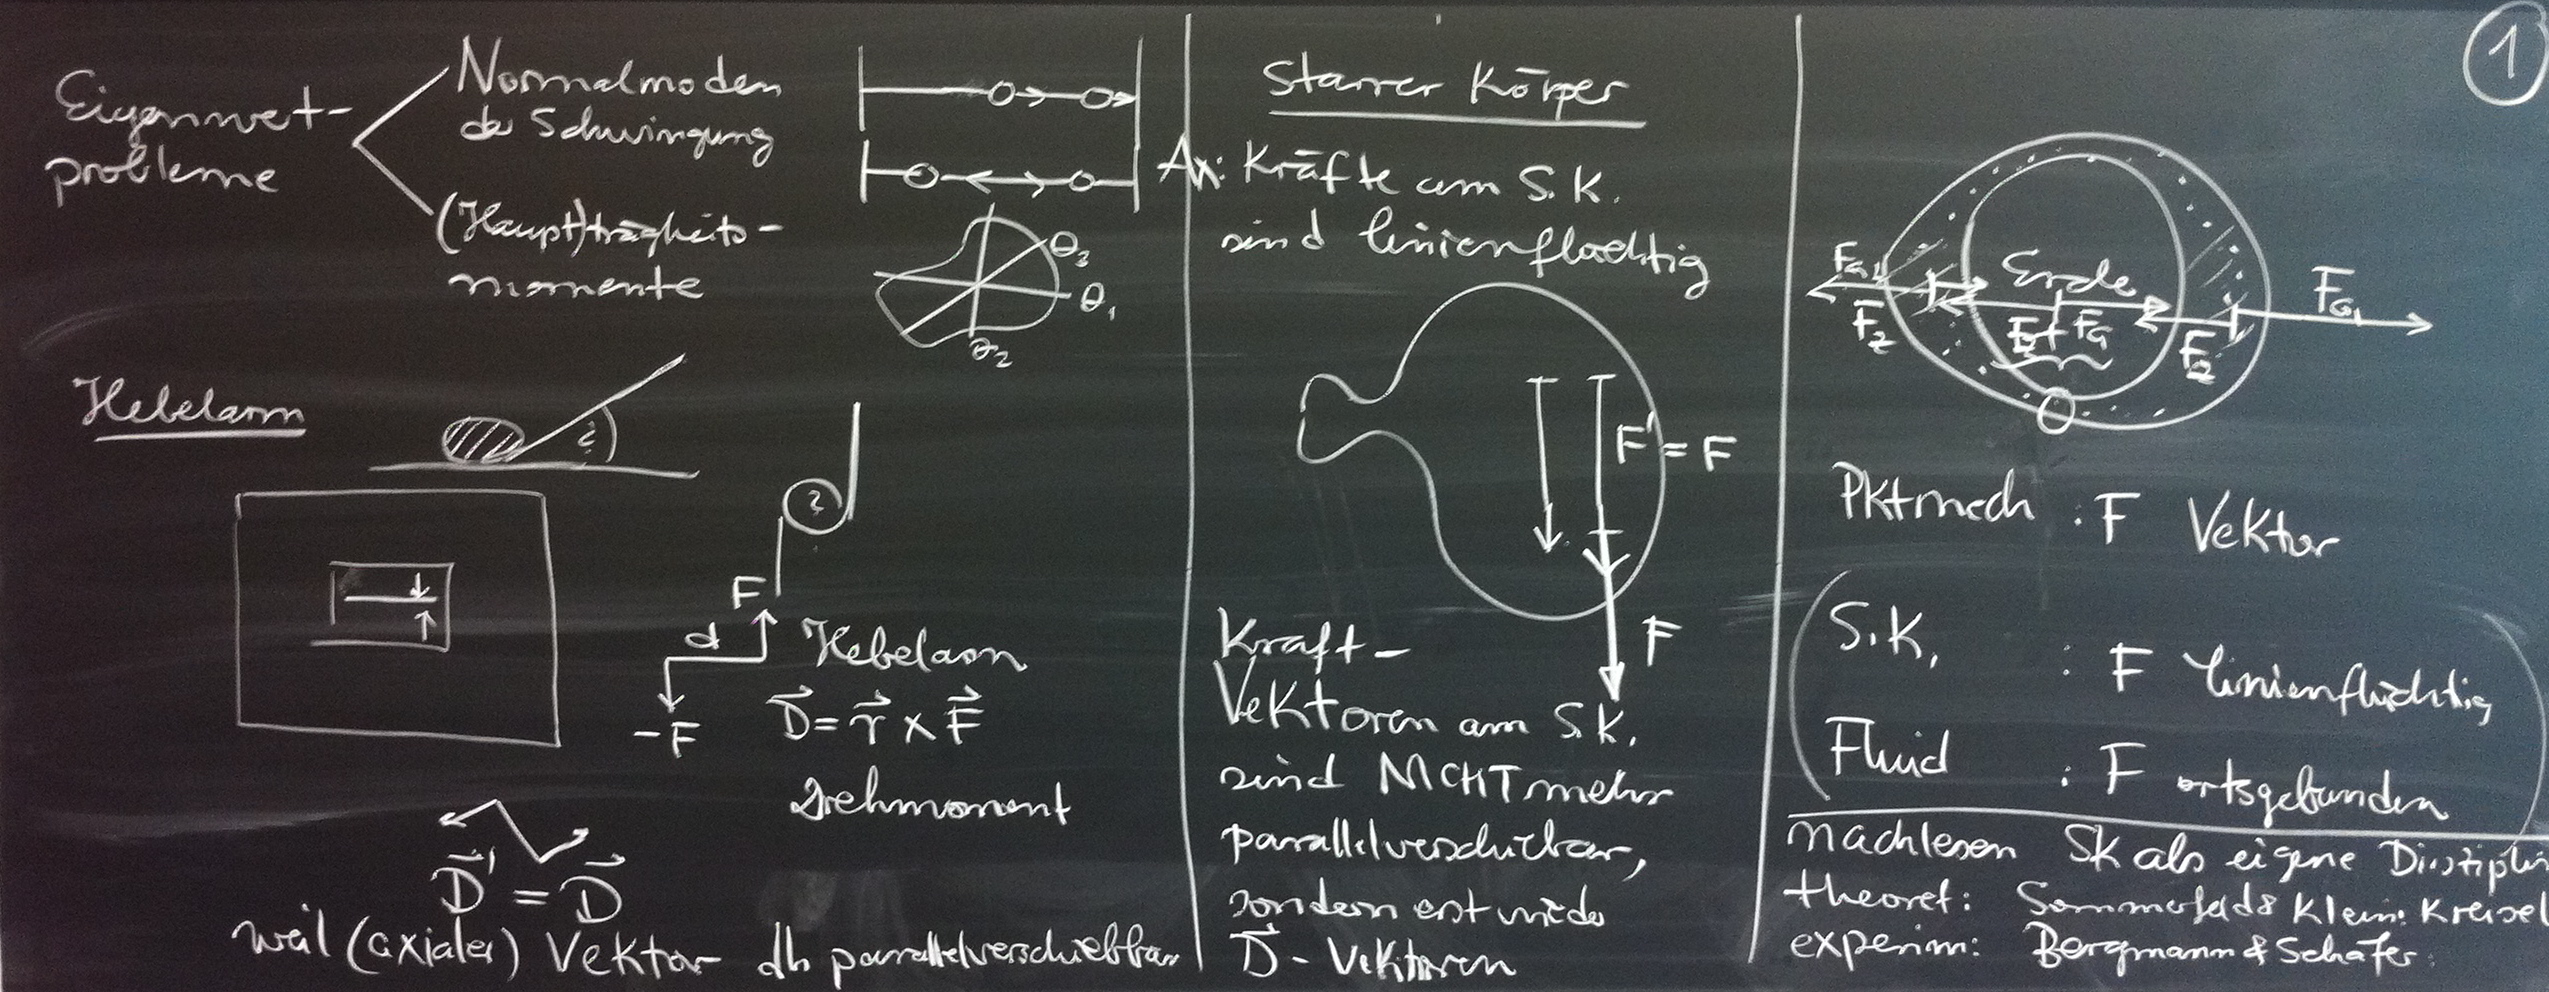 Eigenwert-
probleme
Normalmoden
der Schwingung
(Haupt)trägheits-
momente
θ₃
θ₁
θ₂
Hebelarm
F
d
-F
Hebelarm
D⃗ = r⃗ × F⃗
Drehmoment
D⃗' = D⃗
weil (axialer) Vektor dh parallelverschiebbar
Starrer Körper
Ax: Kräfte am S.K.
sind linienflüchtig
F' = F
F
Kraft-
Vektoren am S.K.
sind NICHT mehr
parallelverschiebar,
sondern erst wieder
D⃗ - Vektoren
1
F_G
F_Z
Erde
F_Z F_G
F_Z
F_G
Pktmech : F Vektor
S.K. : F linienflüchtig
Fluid : F ortsgebunden
nachlesen SK als eigene Disziplin
theoret: Sommerfeld & Klein: Kreisel
experim: Bergmann & Schäfer